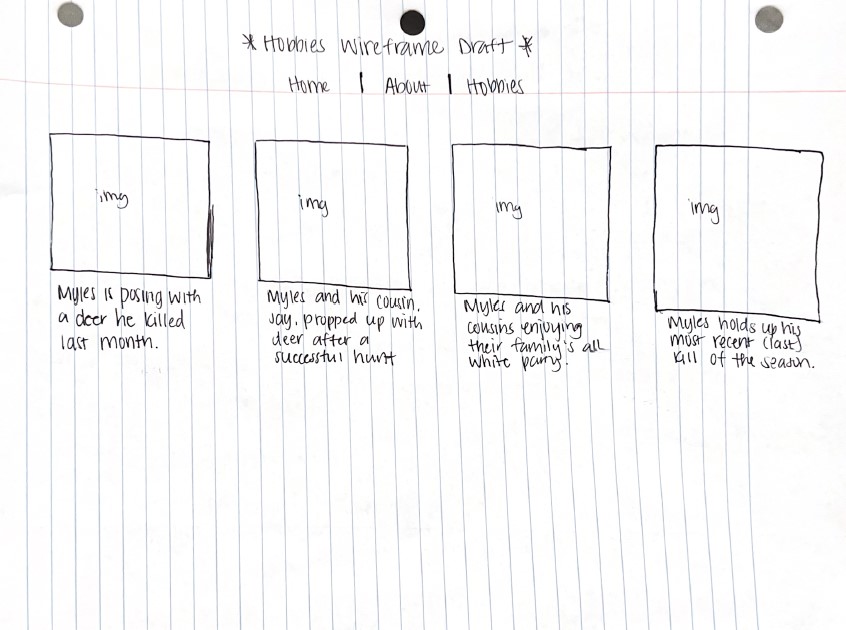 * Hobbies Wireframe Draft *
Home | About | Hobbies
img
img
img
img
Myles is posing with
a deer he killed
last month.
Myles and his cousin,
Jay, propped up with
deer after a
successful hunt
Myles and his
cousins enjoying
their family's all
white party.
Myles holds up his
most recent (last)
kill of the season.